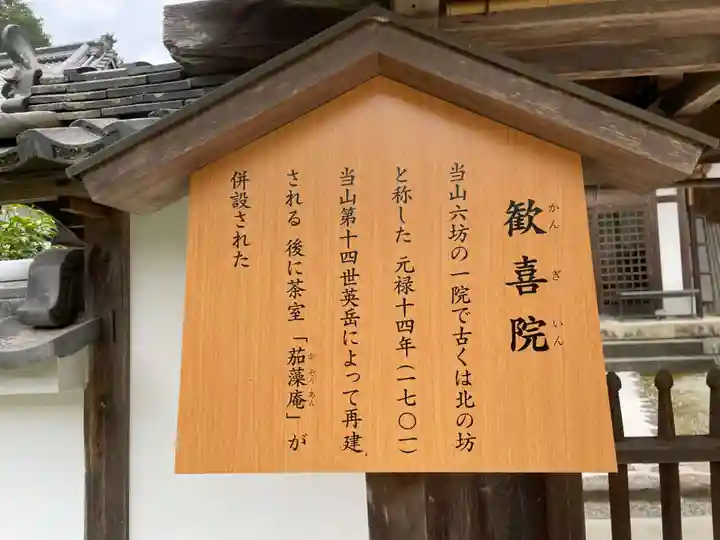 歓喜院
かんぎいん
当山六坊の一院で古くは北の坊
と称した 元禄十四年(一七〇一)
当山第十四世英岳によって再建
される 後に茶室「茄藻庵」が
か そう あん
併設された